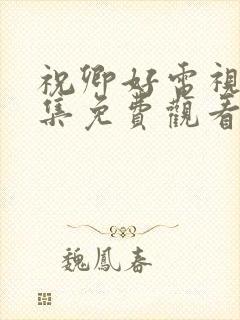 祝卿好電視
集免費觀看
魏鳳春